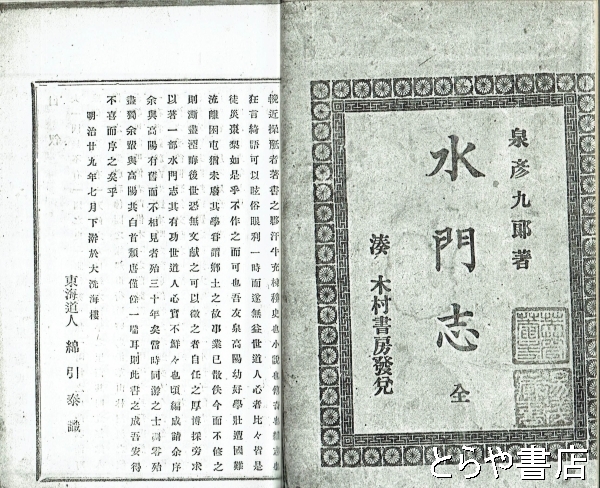 泉彦九郎著
水門志
全
湊 木村書房發兌
輓近操觚者著書之夥汗牛充棟稗史也小說也
狂言綺語可以眩俗眼利一時而遂無益世道人心者比々皆是
徒災棗梨如是乎不作之而可也吾友泉高陽幼好學壯遭國難
流離困屯猶未廢其學嘗謂鄉土之故事業已散佚今而不修之
則澌盡湮晦後世恐無文献之可以徵之者自任之厚博採旁求
以著一部水門志其有功世道人心實不鮮々也頃編成請余序
余與高陽有舊而不相見者殆三十年矣當時同游之士凋零殆
盡獨余輩與高陽共白首頽唐僅餘一喘耳則此書之成吾安得
不喜而序之矣乎
明治廿九年七月下澣於大洗海樓
東海道人 綿引泰識
とらや書店